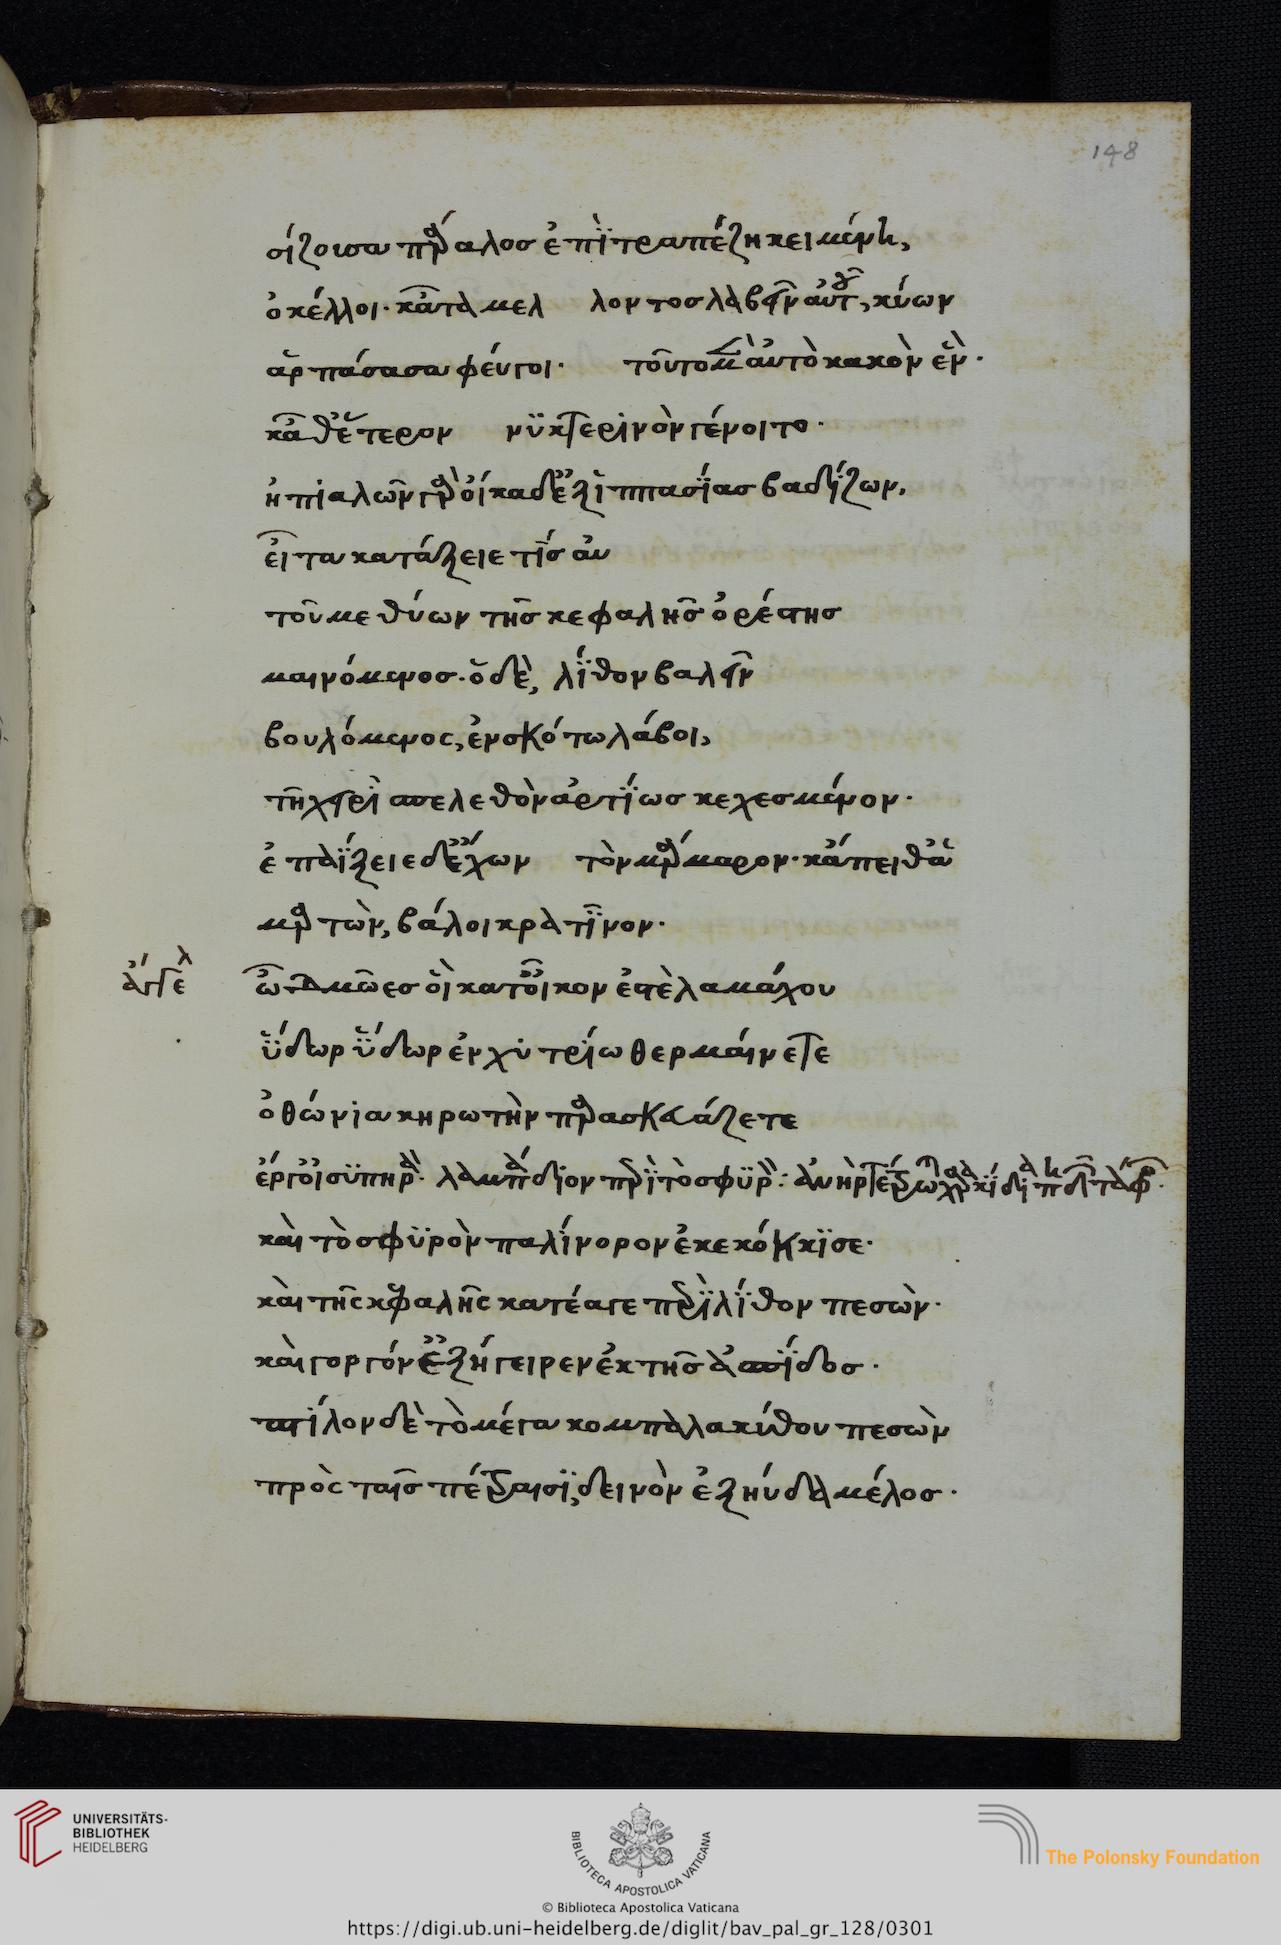 148
σίζουσα πάραλος ἐπὶ τραπέζη κειμένη,
ὀκέλλοι· κᾆτα μέλλοντος λαβεῖν αὐτοῦ, κύων
ἁρπάσασα φεύγοι· τοῦτο μὲν αὐτὸ κακὸν ἕν·
κᾆθ' ἕτερον νυκτερινὸν γένοιτο·
ἠπιαλῶν γὰρ οἴκαδ' ἐξ ἱππασίας βαδίζων,
εἶτα κατάξειε τίς ἀν
τοῦ μεθύων τῆς κεφαλῆς ὀρέστης
μαινόμενος· ὁ δὲ, λίθον βαλεῖν
βουλόμενος, ἐν σκότω λάβοι,
τῆ χειρὶ σπέλεθον ἀρτίως κεχεσμένον·
ἐπαΐξειε δ' ἔχων τὸν μάρμαρον· κἄπειθ' ἁ
μαρτὼν, βάλοι κρατῖνον·
ἀγγελ ὦ δμῶες οἳ κατ' οἶκον ἐστὲ λαμάχου
ὕδωρ ὕδωρ ἐν χυτρίω θερμαίνετε
ὀθόνια κηρωτὴν παρασκευάζετε
καὶ τὸ σφυρὸν παλίνορον ἐκεκόκκισε·
καὶ τῆς κεφαλῆς κατέαγε περὶ λίθον πεσὼν·
καὶ γοργόν' ἐξήγειρεν ἐκ τῆς ἀσπίδος·
πτίλον δὲ τὸ μέγα κομπαλακύθου πεσὼν
πρὸς ταῖς πέτραισι, δεινὸν ἐξηύδα μέλος·
UNIVERSITÄTS-
BIBLIOTHEK
HEIDELBERG
BIBLIOTECA APOSTOLICA VATICANA
The Polonsky Foundation
© Biblioteca Apostolica Vaticana
https://digi.ub.uni-heidelberg.de/diglit/bav_pal_gr_128/0301